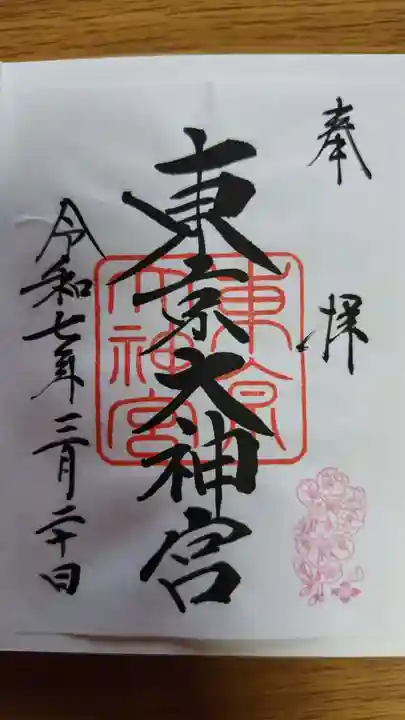 奉拝
東京大神宮
東京大神宮
令和七年三月二十日